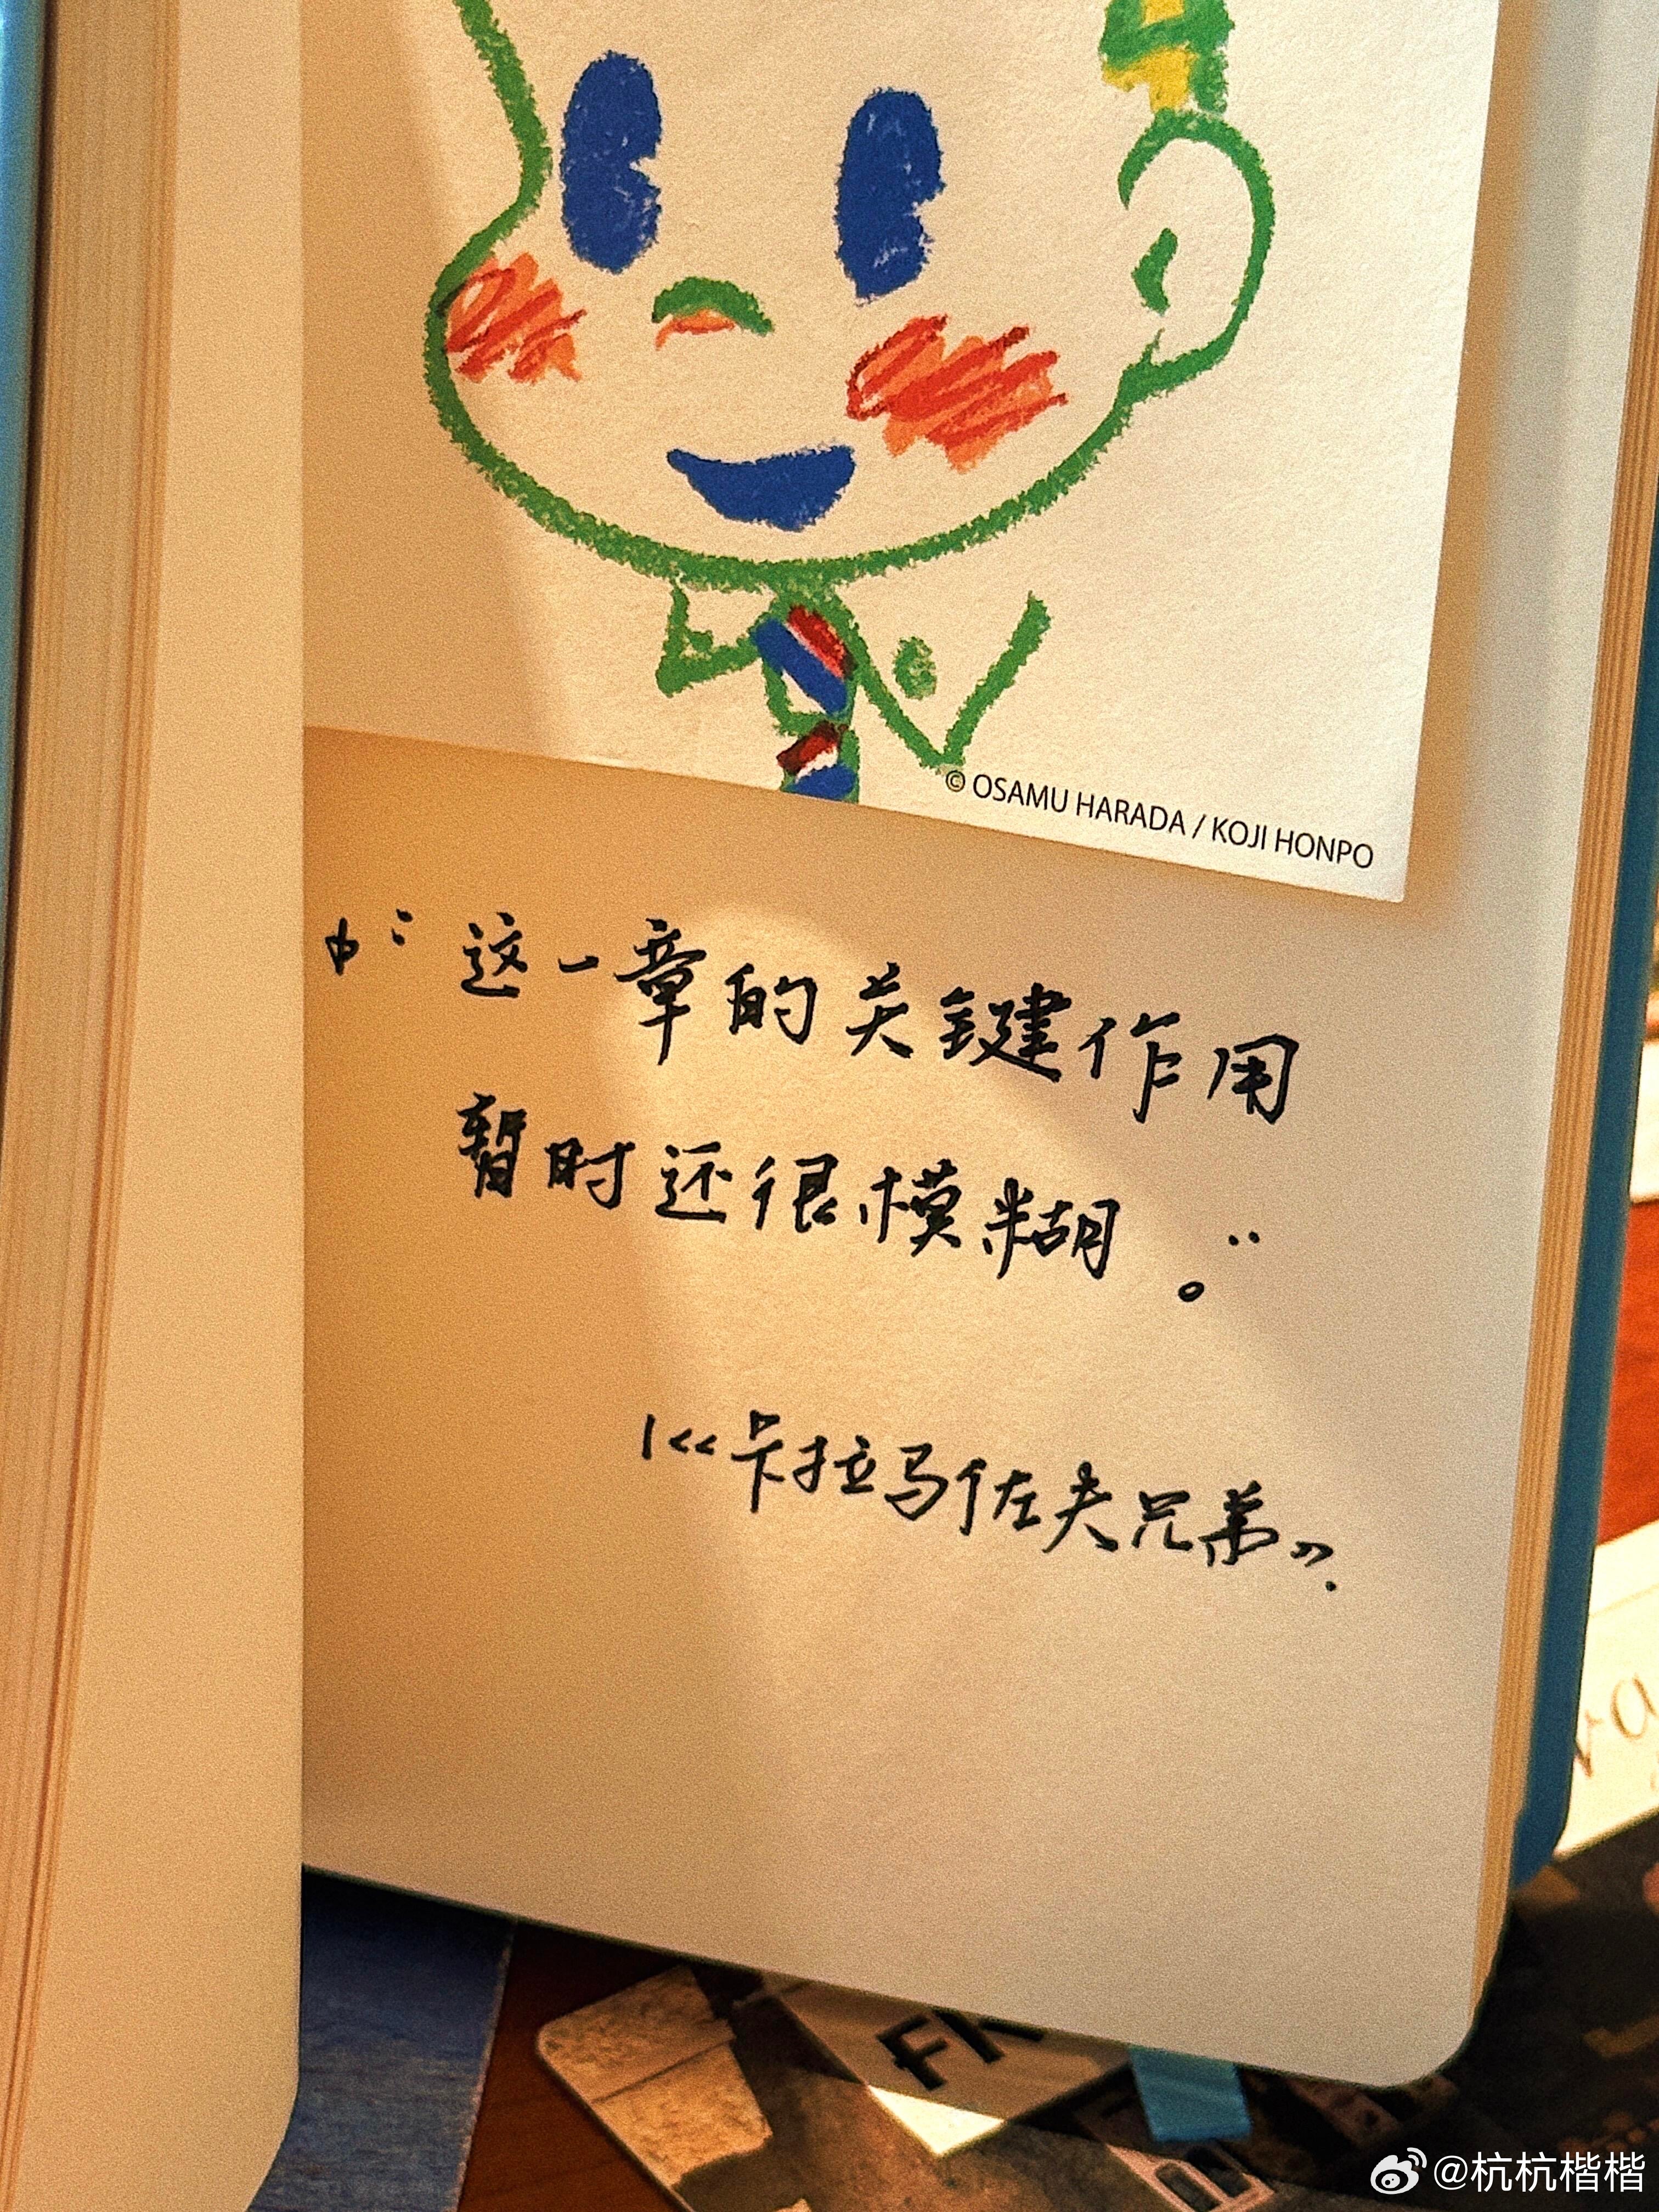 © OSAMU HARADA / KOJI HONPO
中：这一章的关键作用
暂时还很模糊。”
《卡拉马佐夫兄弟》.
FK
@杭杭楷楷